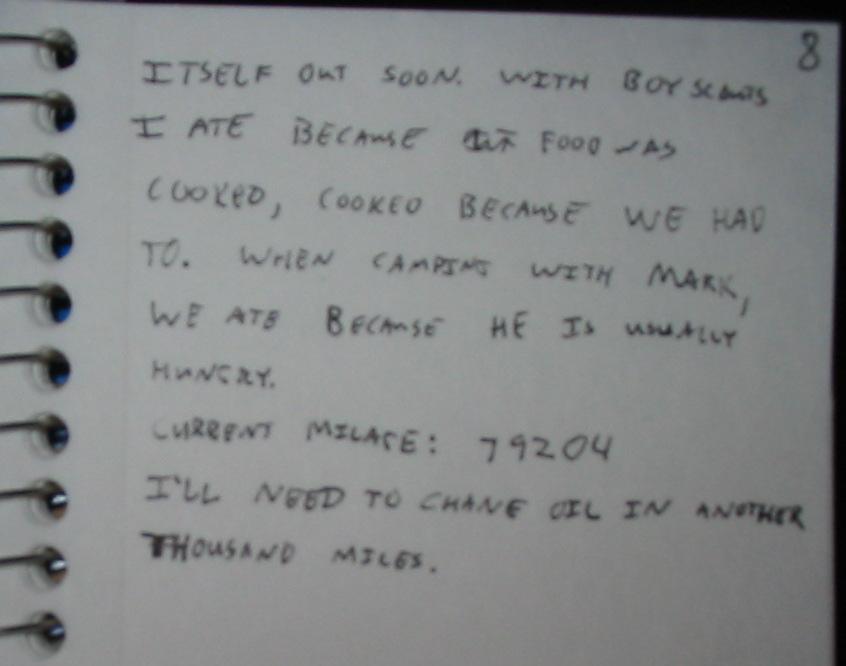 8
ITSELF OUT SOON. WITH BOY SCOUTS
I ATE BECAUSE FOOD WAS
COOKED, COOKED BECAUSE WE HAD
TO. WHEN CAMPING WITH MARK,
WE ATE BECAUSE HE IS USUALLY
HUNGRY.
CURRENT MILAGE: 79204
I'LL NEED TO CHANE OIL IN ANOTHER
THOUSAND MILES.